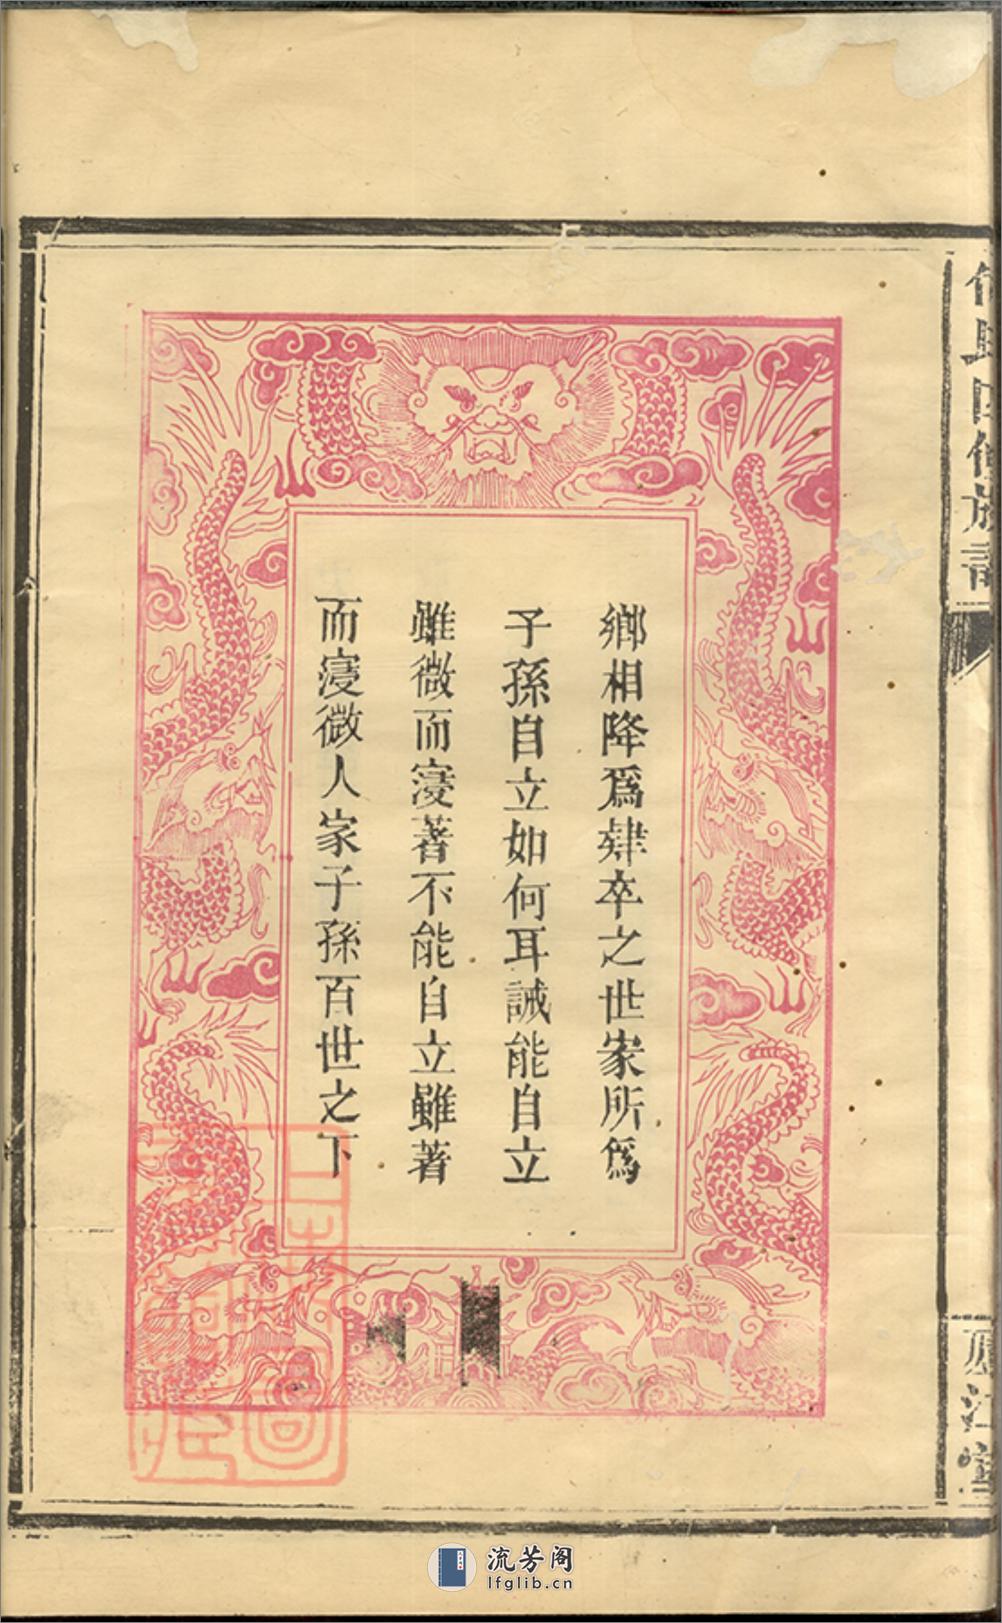 鄉相降爲肂卒之世家所爲
子孫自立如何耳誠能自立
雖微而寖著不能自立雖著
而寖微人家子孫百世之下
修族譜
江堂
流芳阁
lfglib.cn